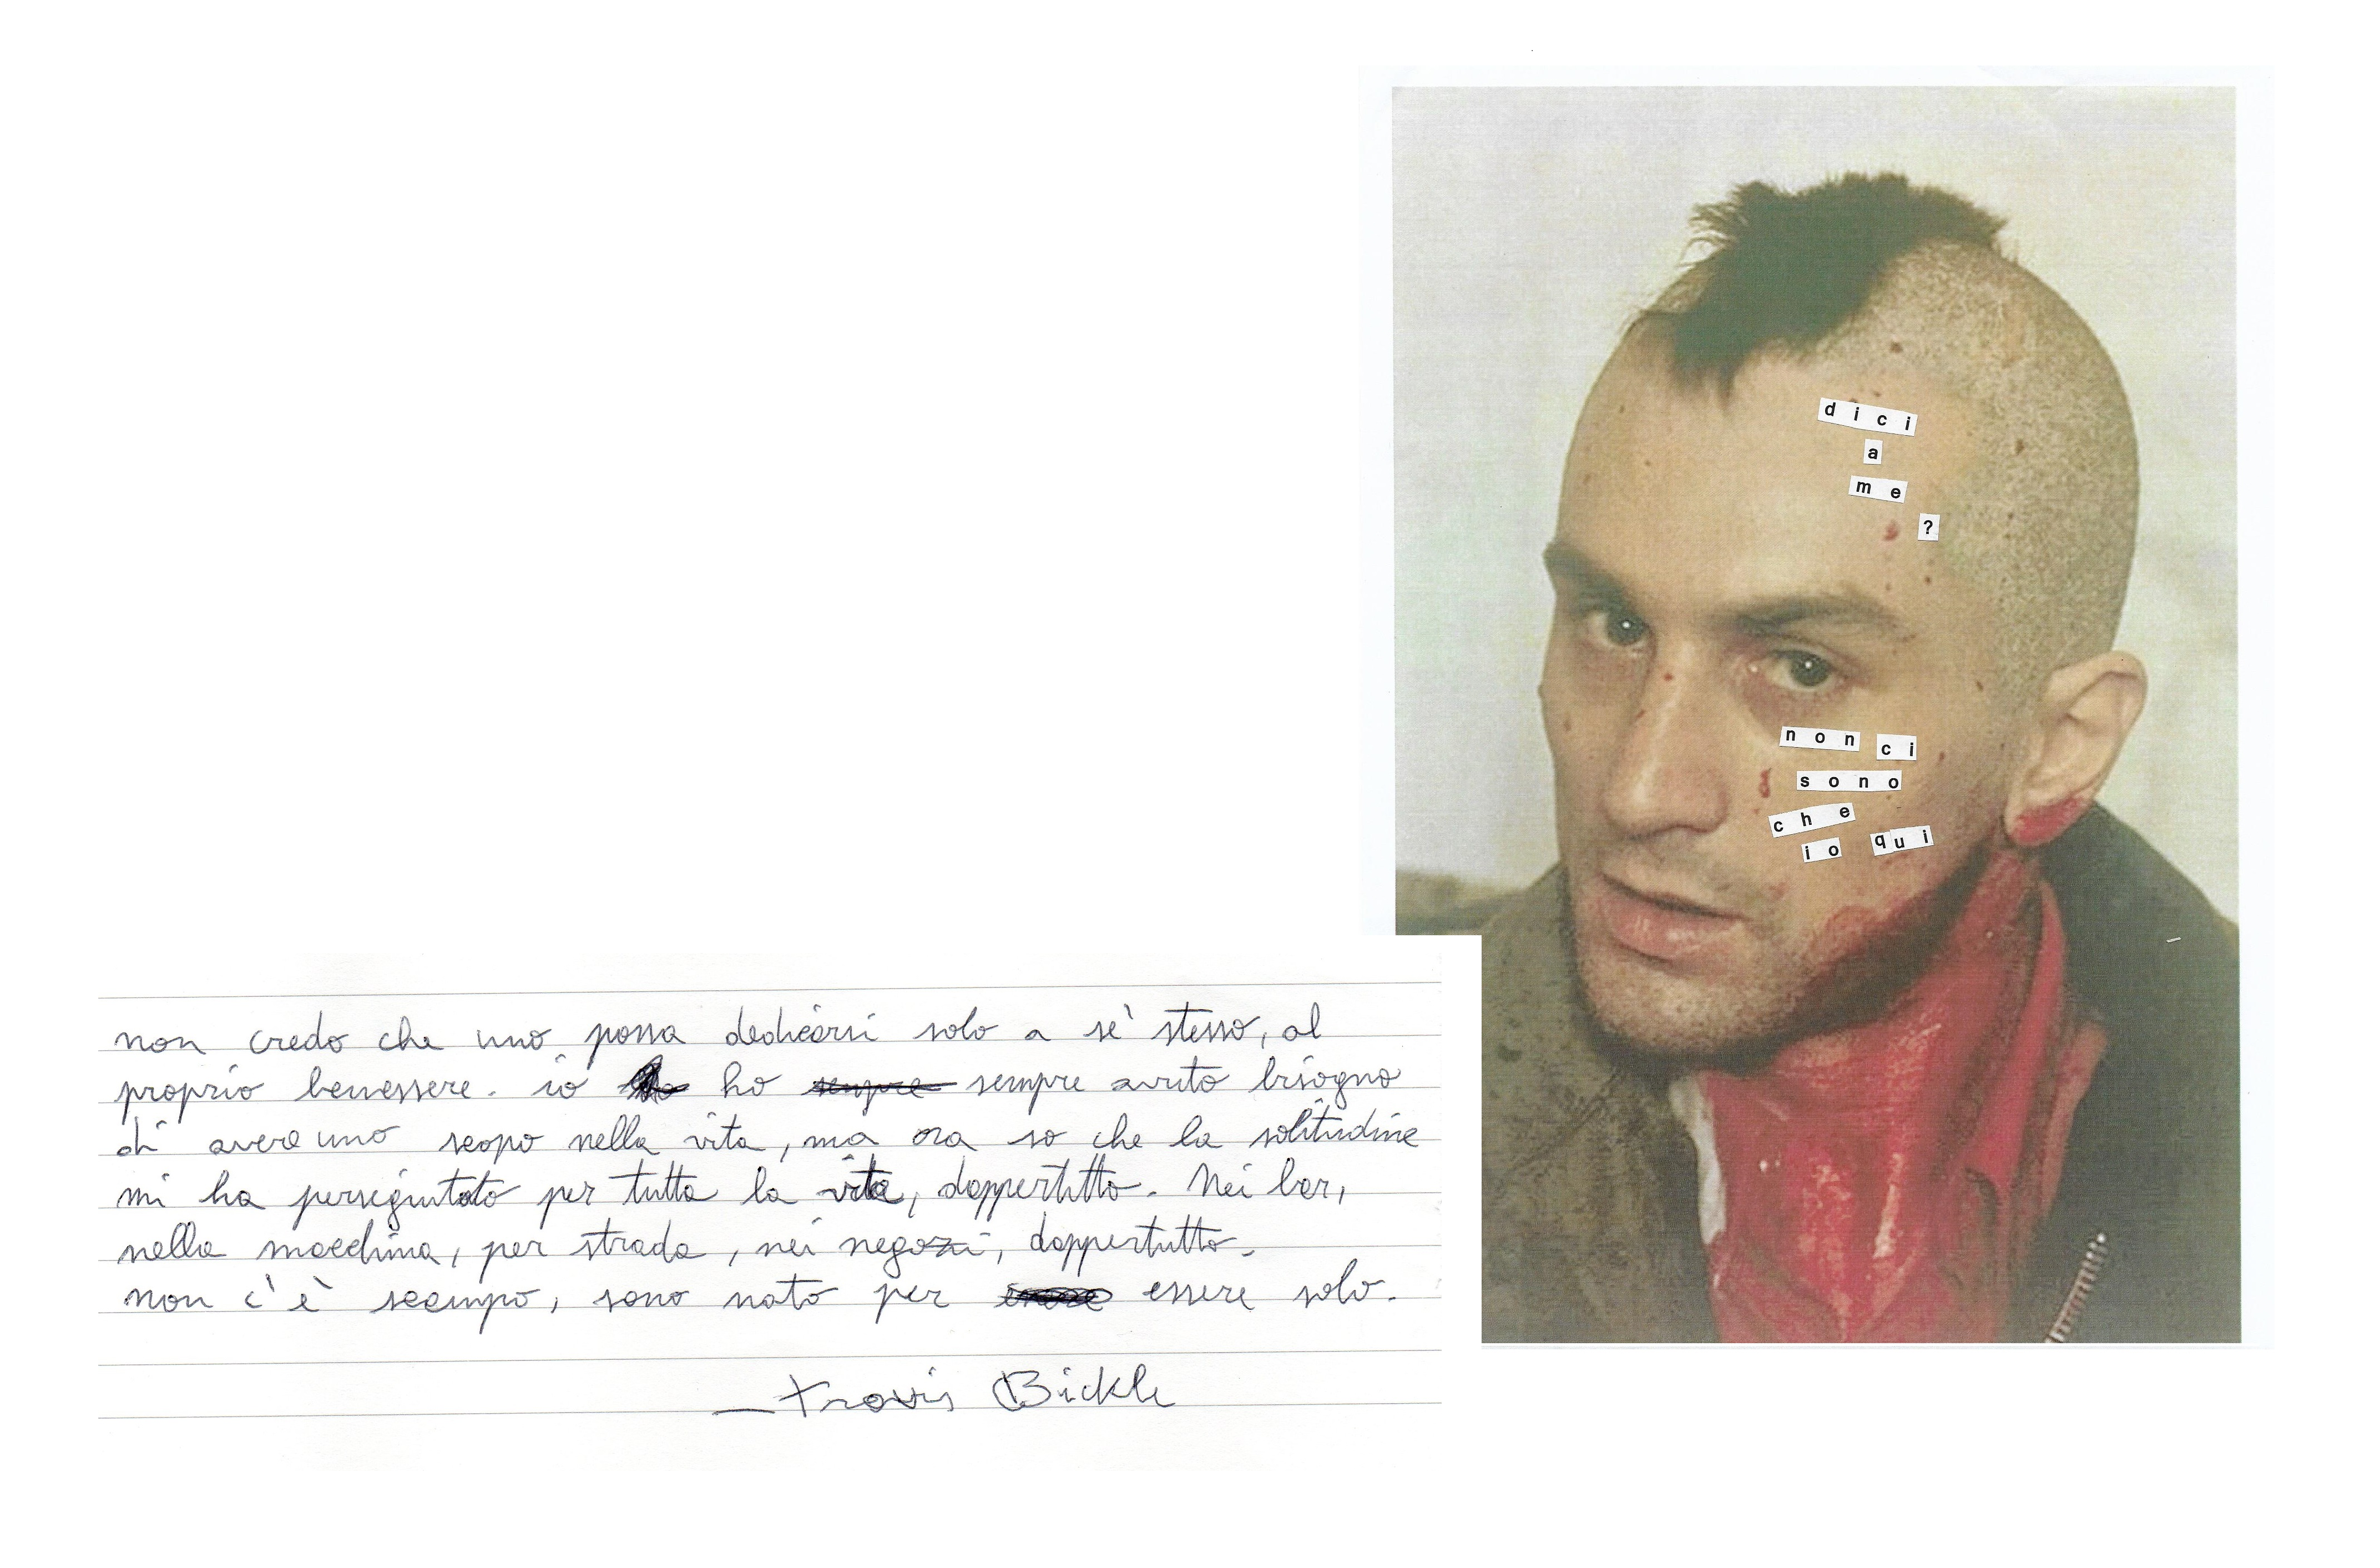 dici
a
me
?
non ci
sono
che
io qui
non credo che uno possa dedicarsi solo a sè stesso, al
proprio benessere. io ho sempre sempre avuto bisogno
di avere uno scopo nella vita, ma ora so che la solitudine
mi ha perseguitato per tutta la vita, dappertutto. Nei bar,
nella macchina, per strada, nei negozi, dappertutto.
non c'è scampo, sono nato per essere solo.
— Travis Bickle